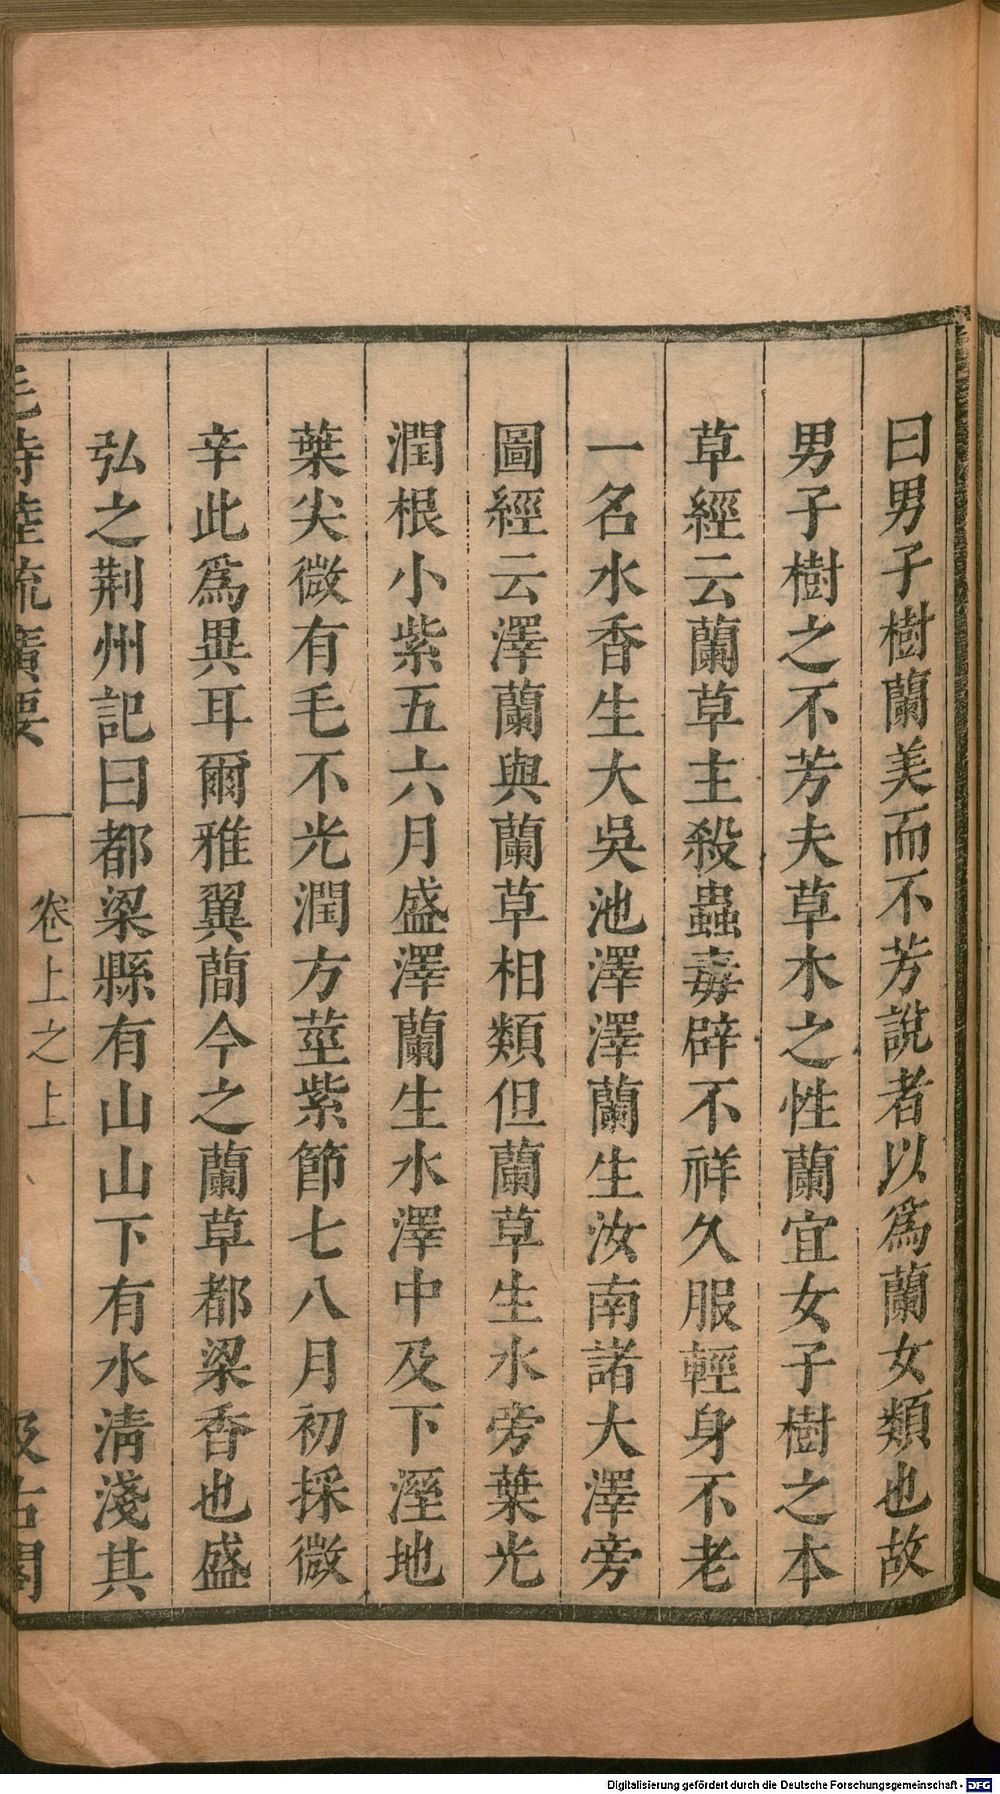 曰男子樹蘭美而不芳說者以爲蘭女類也故
男子樹之不芳夫草木之性蘭宜女子樹之本
草經云蘭草主殺蟲毒辟不祥久服輕身不老
一名水香生大吳池澤澤蘭生汝南諸大澤旁
圖經云澤蘭與蘭草相類但蘭草生水旁葉光
潤根小紫五六月盛澤蘭生水澤中及下溼地
葉尖微有毛不光潤方莖紫節七八月初採微
辛此爲異耳爾雅翼蕳今之蘭草都梁香也盛
弘之荆州記曰都梁縣有山山下有水淸淺其
毛詩陸疏廣要
卷上之上
汲古閣
Digitalisierung gefördert durch die Deutsche Forschungsgemeinschaft - DFG